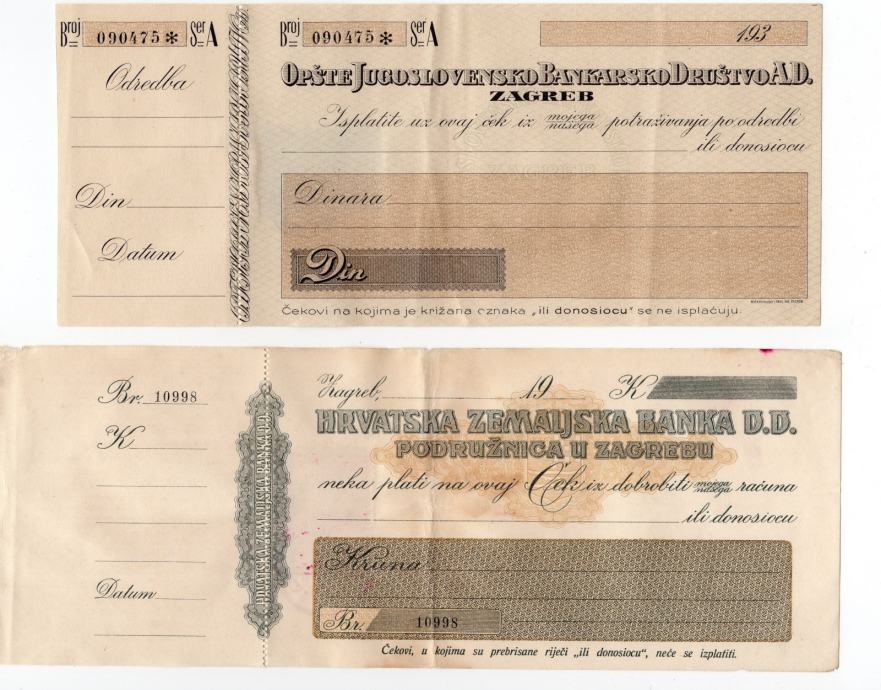 Broj 090475* Ser A
Odredba
Din
Datum
Broj 090475* Ser A
193
OPŠTE JUGOSLOVENSKO BANKARSKO DRUŠTVO A.D.
ZAGREB
Isplatite uz ovaj ček iz mojega našega potraživanja po odredbi
ili donosiocu
Dinara
Din
Čekovi na kojima je križana oznaka „ili donosiocu“ se ne isplaćuju.
Br. 10998
K
Datum
HRVATSKA ZEMALJSKA BANKA D.D.
Zagreb, 19 K
HRVATSKA ZEMALJSKA BANKA D.D.
PODRUŽNICA U ZAGREBU
neka plati na ovaj Ček iz dobrobiti mojega našega računa
ili donosiocu
Kruna
Br. 10998
Čekovi, u kojima su prebrisane riječi „ili donosiocu“, neće se izplatiti.